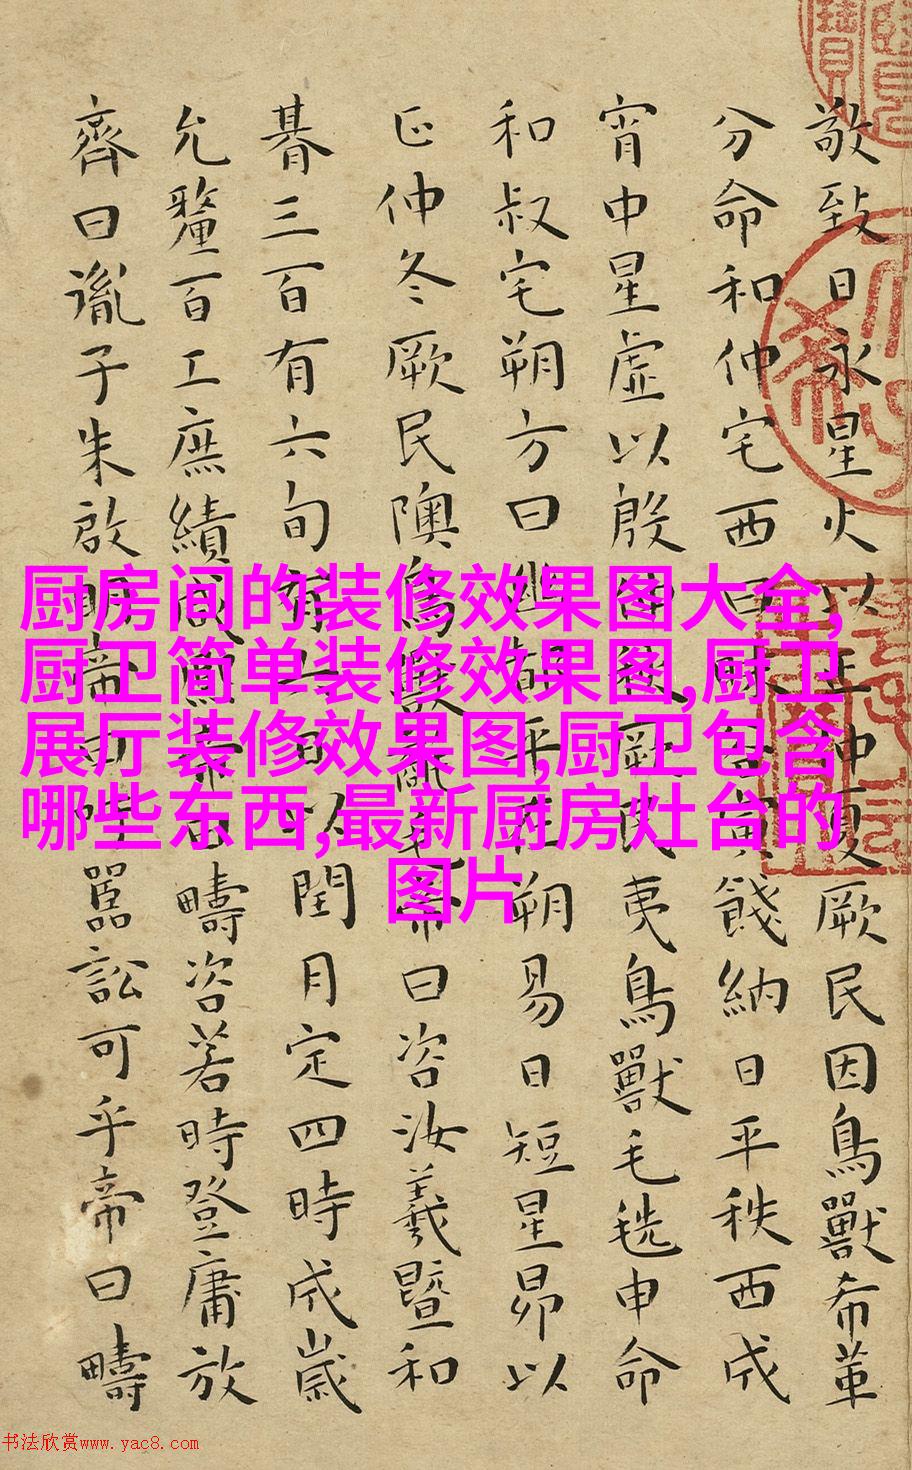 敬致日永星火以正仲夏厥民因鳥獸希革
分命和仲宅西曰昧谷寅餞納日平秩西成
宵中星虛以殷仲秋厥民夷鳥獸毛毨申命
和叔宅朔方曰幽都平在朔易日短星昴以
正仲冬厥民隩鳥獸氄毛帝曰咨汝羲暨和
朞三百有六旬有六日以閏月定四時成歲
允釐百工庶績咸熙帝曰疇咨若時登庸放
齊曰胤子朱啟明帝曰吁嚚訟可乎帝曰疇
厨房间的装修效果图大全,
厨卫简单装修效果图,厨卫
展厅装修效果图,厨卫包含
哪些东西,最新厨房灶台的
图片
书法欣赏www.yac8.com